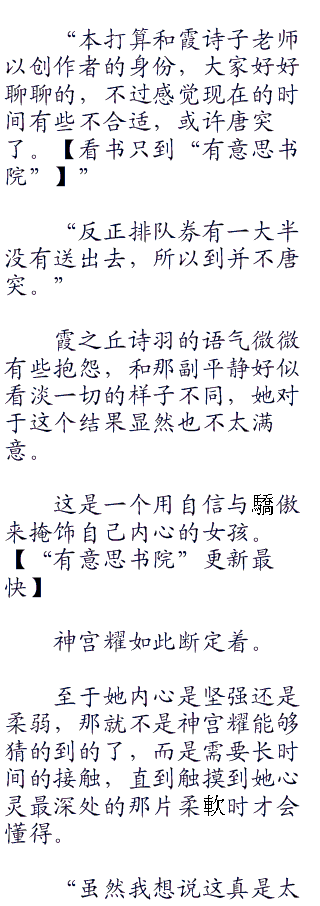 “本打算和霞诗子老师
以创作者的身份，大家好好
聊聊的，不过感觉现在的时
间有些不合适，或许唐突
了。【看书只到“有意思书
院”】”
“反正排队券有一大半
没有送出去，所以到并不唐
突。”
霞之丘诗羽的语气微微
有些抱怨，和那副平静好似
看淡一切的样子不同，她对
于这个结果显然也不太满
意。
这是一个用自信与驕傲
来掩饰自己内心的女孩。
【“有意思书院”更新最
快】
神宫耀如此断定着。
至于她内心是坚强还是
柔弱，那就不是神宫耀能够
猜的到的了，而是需要长时
间的接触，直到触摸到她心
灵最深处的那片柔軟时才会
懂得。
“虽然我想说这真是太